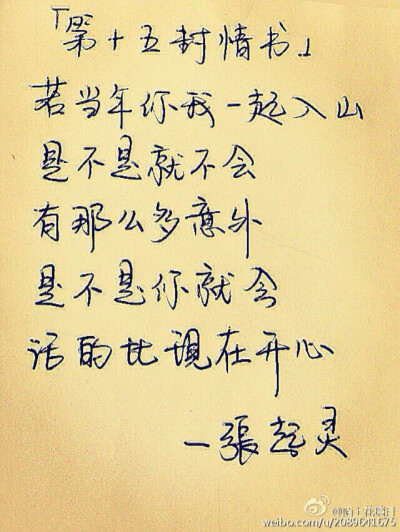 「第十五封情书」
若当年你我一起入山
是不是就不会
有那么多意外
是不是你就会
活的比現在开心
—張起灵
weibo.com/u/2089641675